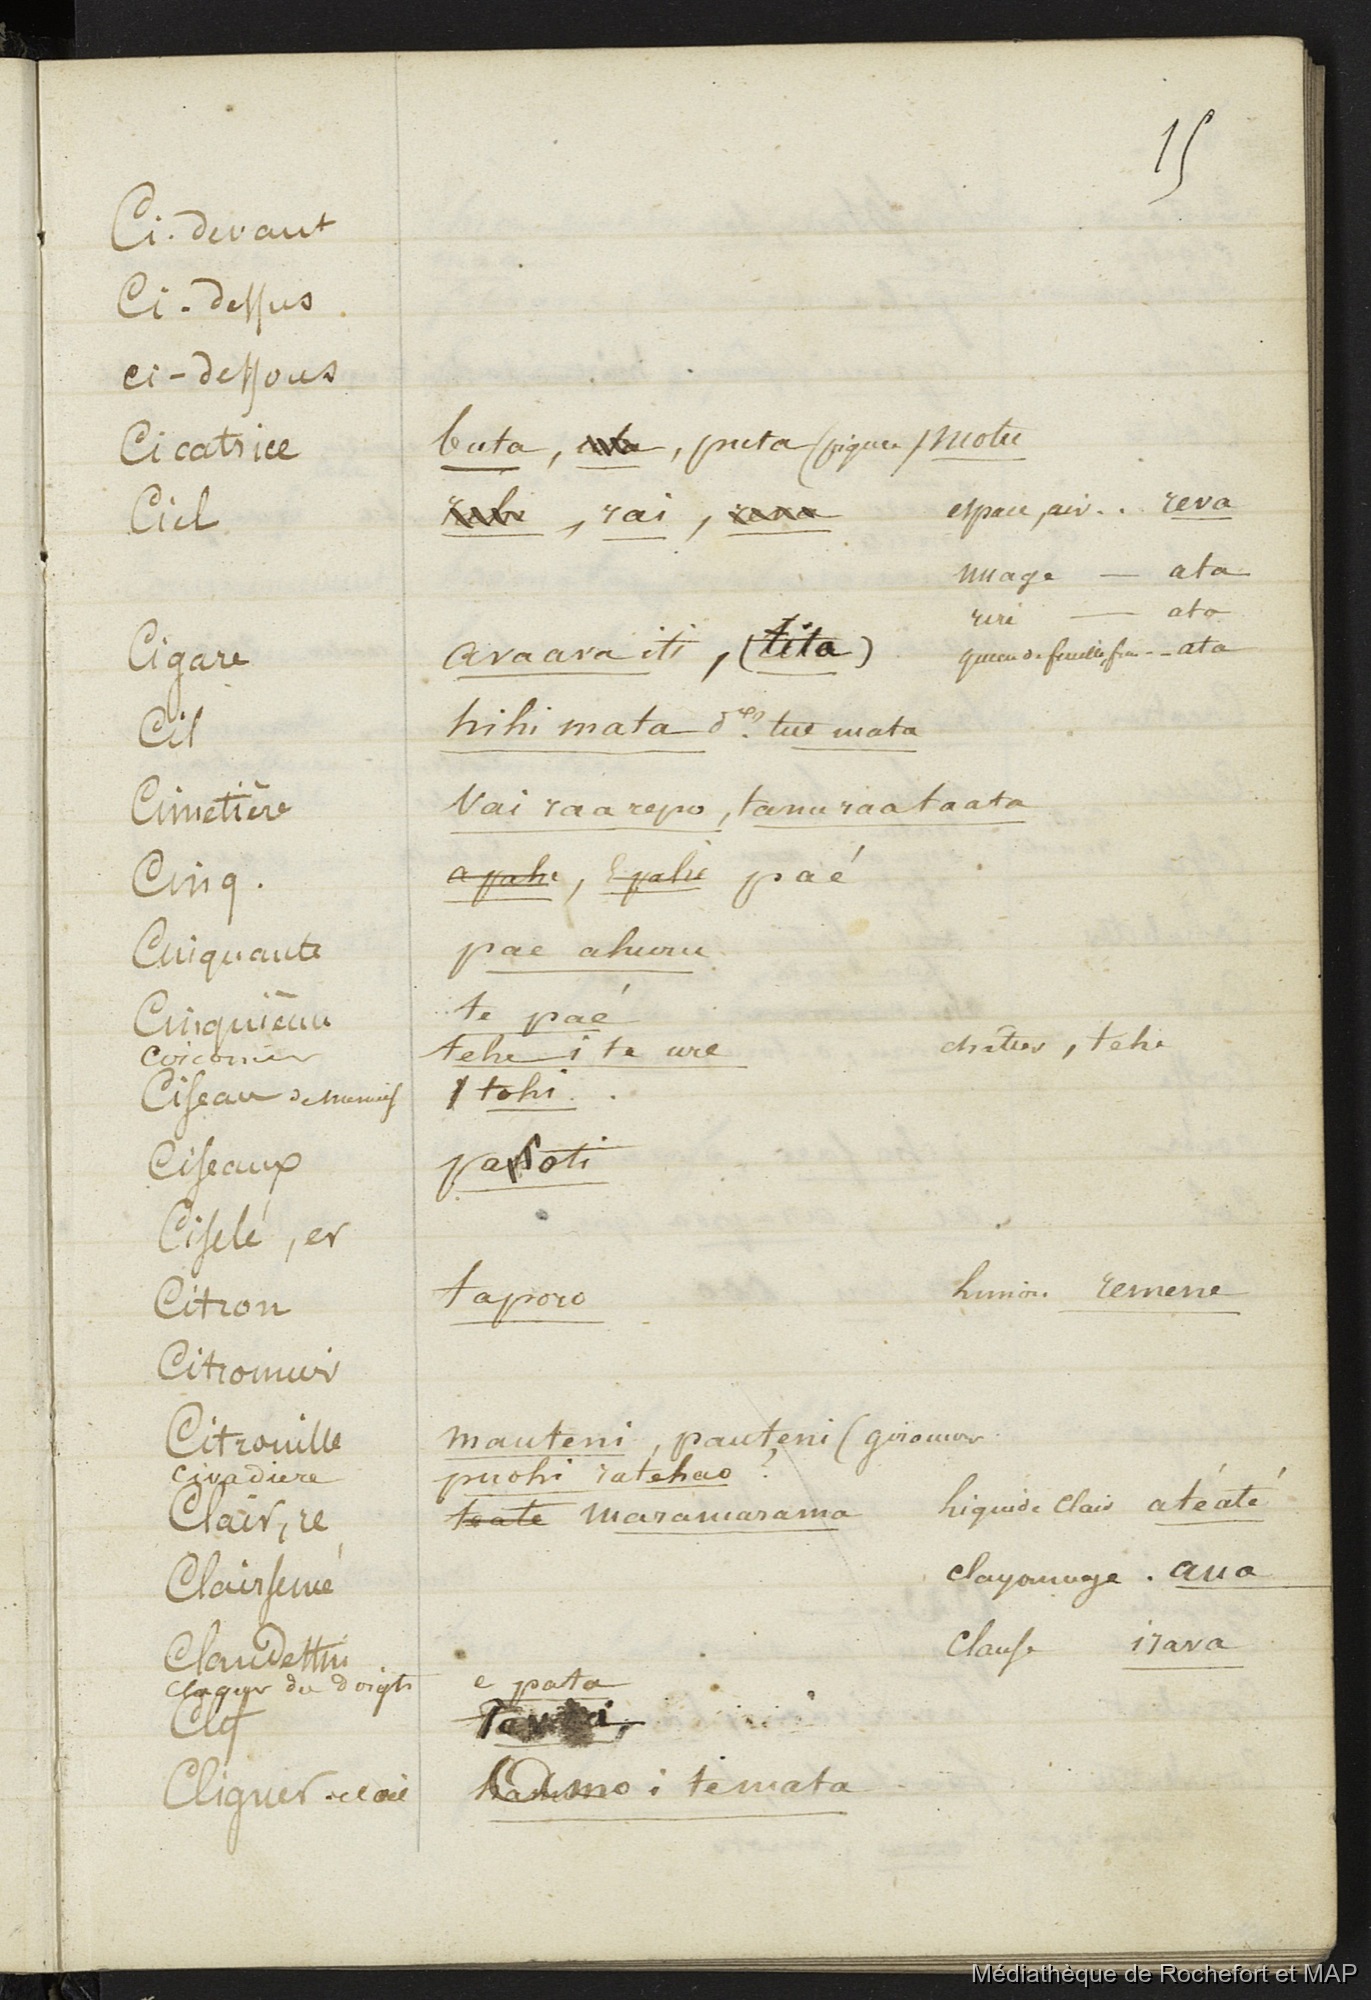 15
Ci-devant
Ci-dessus
ci-dessous
Cicatrice buta, puta (piqure) motu
Ciel rai, espace, air.. reva
nuage — ata
rire — ata
queue de feuille, - - ata
Cigare avaava iti, (tita)
Cil hihi mata tue mata
Cimetière Vai raa repo, tanu raa taata
Cinq. a pahe, E pahe paé
Cinquante pae ahuru
Cinquième te paé
Circoncir tehe i te ure chatrer, tehe
Ciseau de menuis tohi.
Ciseaux papoti
Ciselé, er
Citron taporo limon. remene
Citronnier
Citrouille mauteni, pauteni (giromon
civadiere puohi ratehao ?
Clair, re teate maramarama liquide clair atéaté
Clairsemé clayonnage. aua
Clandestin Clause irava
claquer du doigts e pata
Clef Taviri,
Cligner de l'œil amo i te mata
Médiathèque de Rochefort et MAP